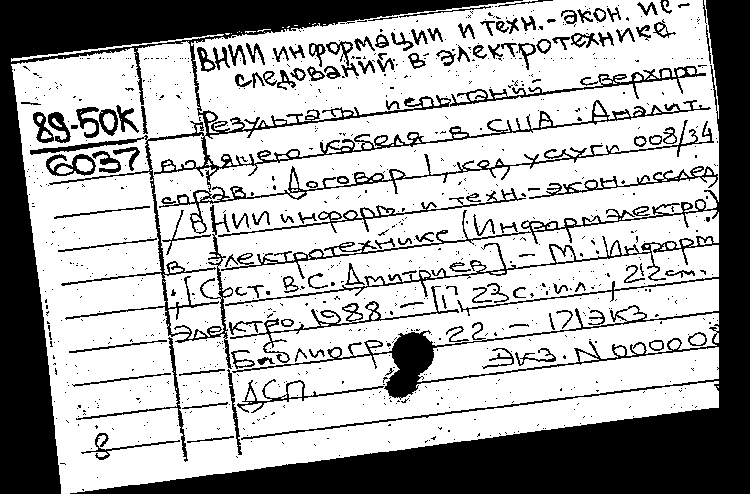 ВНИИ информации и техн.-экон. ис-
следований в электротехнике
89-50К
6037
Результаты испытаний сверхпро-
водящего кабеля в США : Аналит.
справ. : Договор 1, код услуги 008/34
/ ВНИИ информ. и техн.-экон. исслед.
в электротехнике (Информэлектро)
; [Сост. В.С. Дмитриев]. - М. : Информ
электро, 1988. - [1], 23 с. : ил. ; 212 см.
Библиогр. 22. - 171 экз.
Экз. N 000008
ДСП.
8